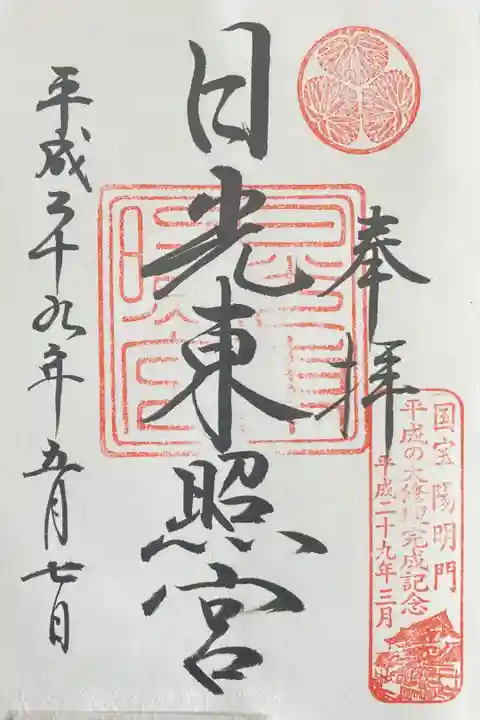 奉拝
国宝陽明門
平成の大修理完成記念
平成二十九年三月
日光東照宮
平成二十九年五月七日